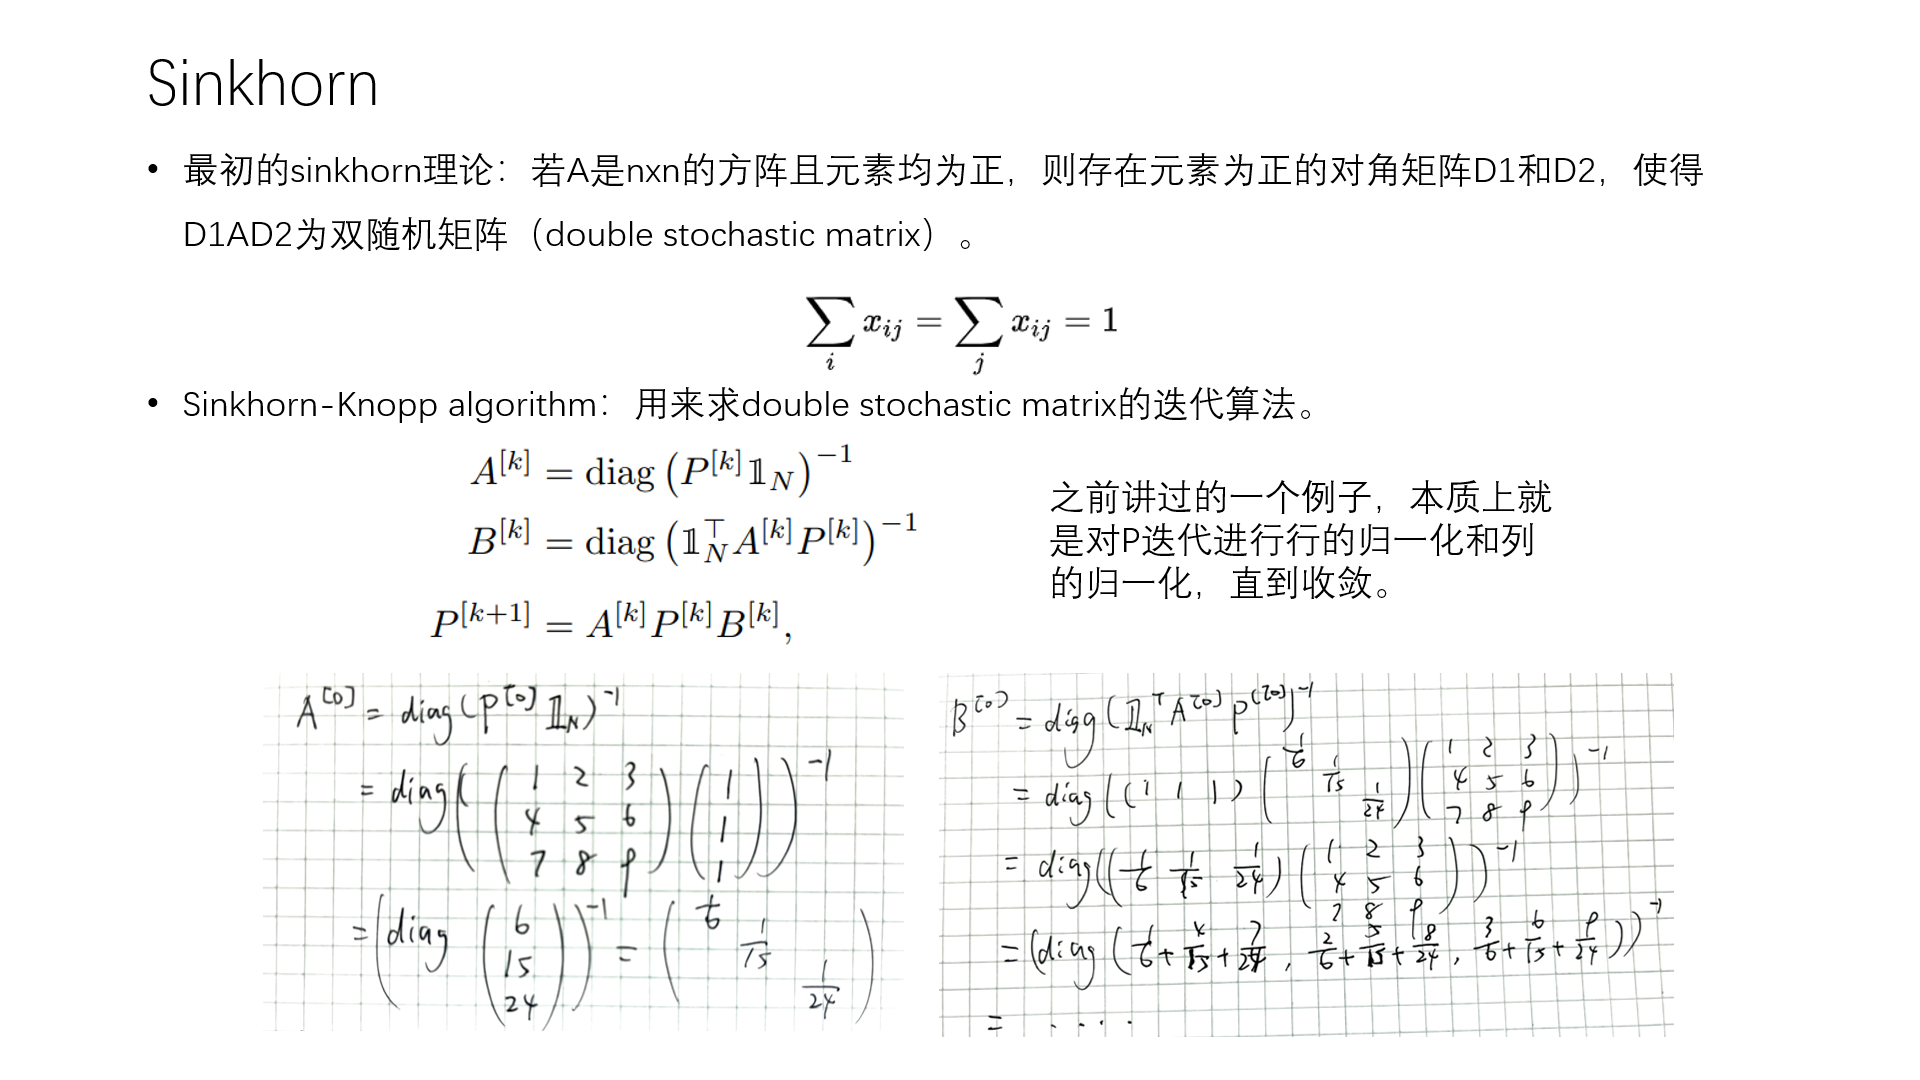 Sinkhorn
• 最初的sinkhorn理论：若A是nxn的方阵且元素均为正，则存在元素为正的对角矩阵D1和D2，使得
D1AD2为双随机矩阵（double stochastic matrix）。
∑_i x_{ij} = ∑_j x_{ij} = 1
• Sinkhorn-Knopp algorithm：用来求double stochastic matrix的迭代算法。
A^{[k]} = diag (P^{[k]} 𝟙_N)^{-1}
B^{[k]} = diag (𝟙_N^⊤ A^{[k]} P^{[k]})^{-1}
P^{[k+1]} = A^{[k]} P^{[k]} B^{[k]},
之前讲过的一个例子，本质上就
是对P迭代进行行的归一化和列
的归一化，直到收敛。
A^{[0]} = diag(P^{[0]} 𝟙_N)^{-1}
= diag((1 2 3; 4 5 6; 7 8 9)(1; 1; 1))^{-1}
= (diag(6; 15; 24))^{-1} = (1/6 1/15 1/24)
B^{[0]} = diag(𝟙_N^T A^{[0]} P^{[0]})^{-1}
= diag((1 1 1)(1/6 1/15 1/24)(1 2 3; 4 5 6; 7 8 9))^{-1}
= diag((1/6 1/15 1/24)(1 2 3; 4 5 6; 7 8 9))^{-1}
= (diag(1/6 + 4/15 + 7/24, 2/6 + 5/15 + 8/24, 3/6 + 6/15 + 9/24))^{-1}
= ....